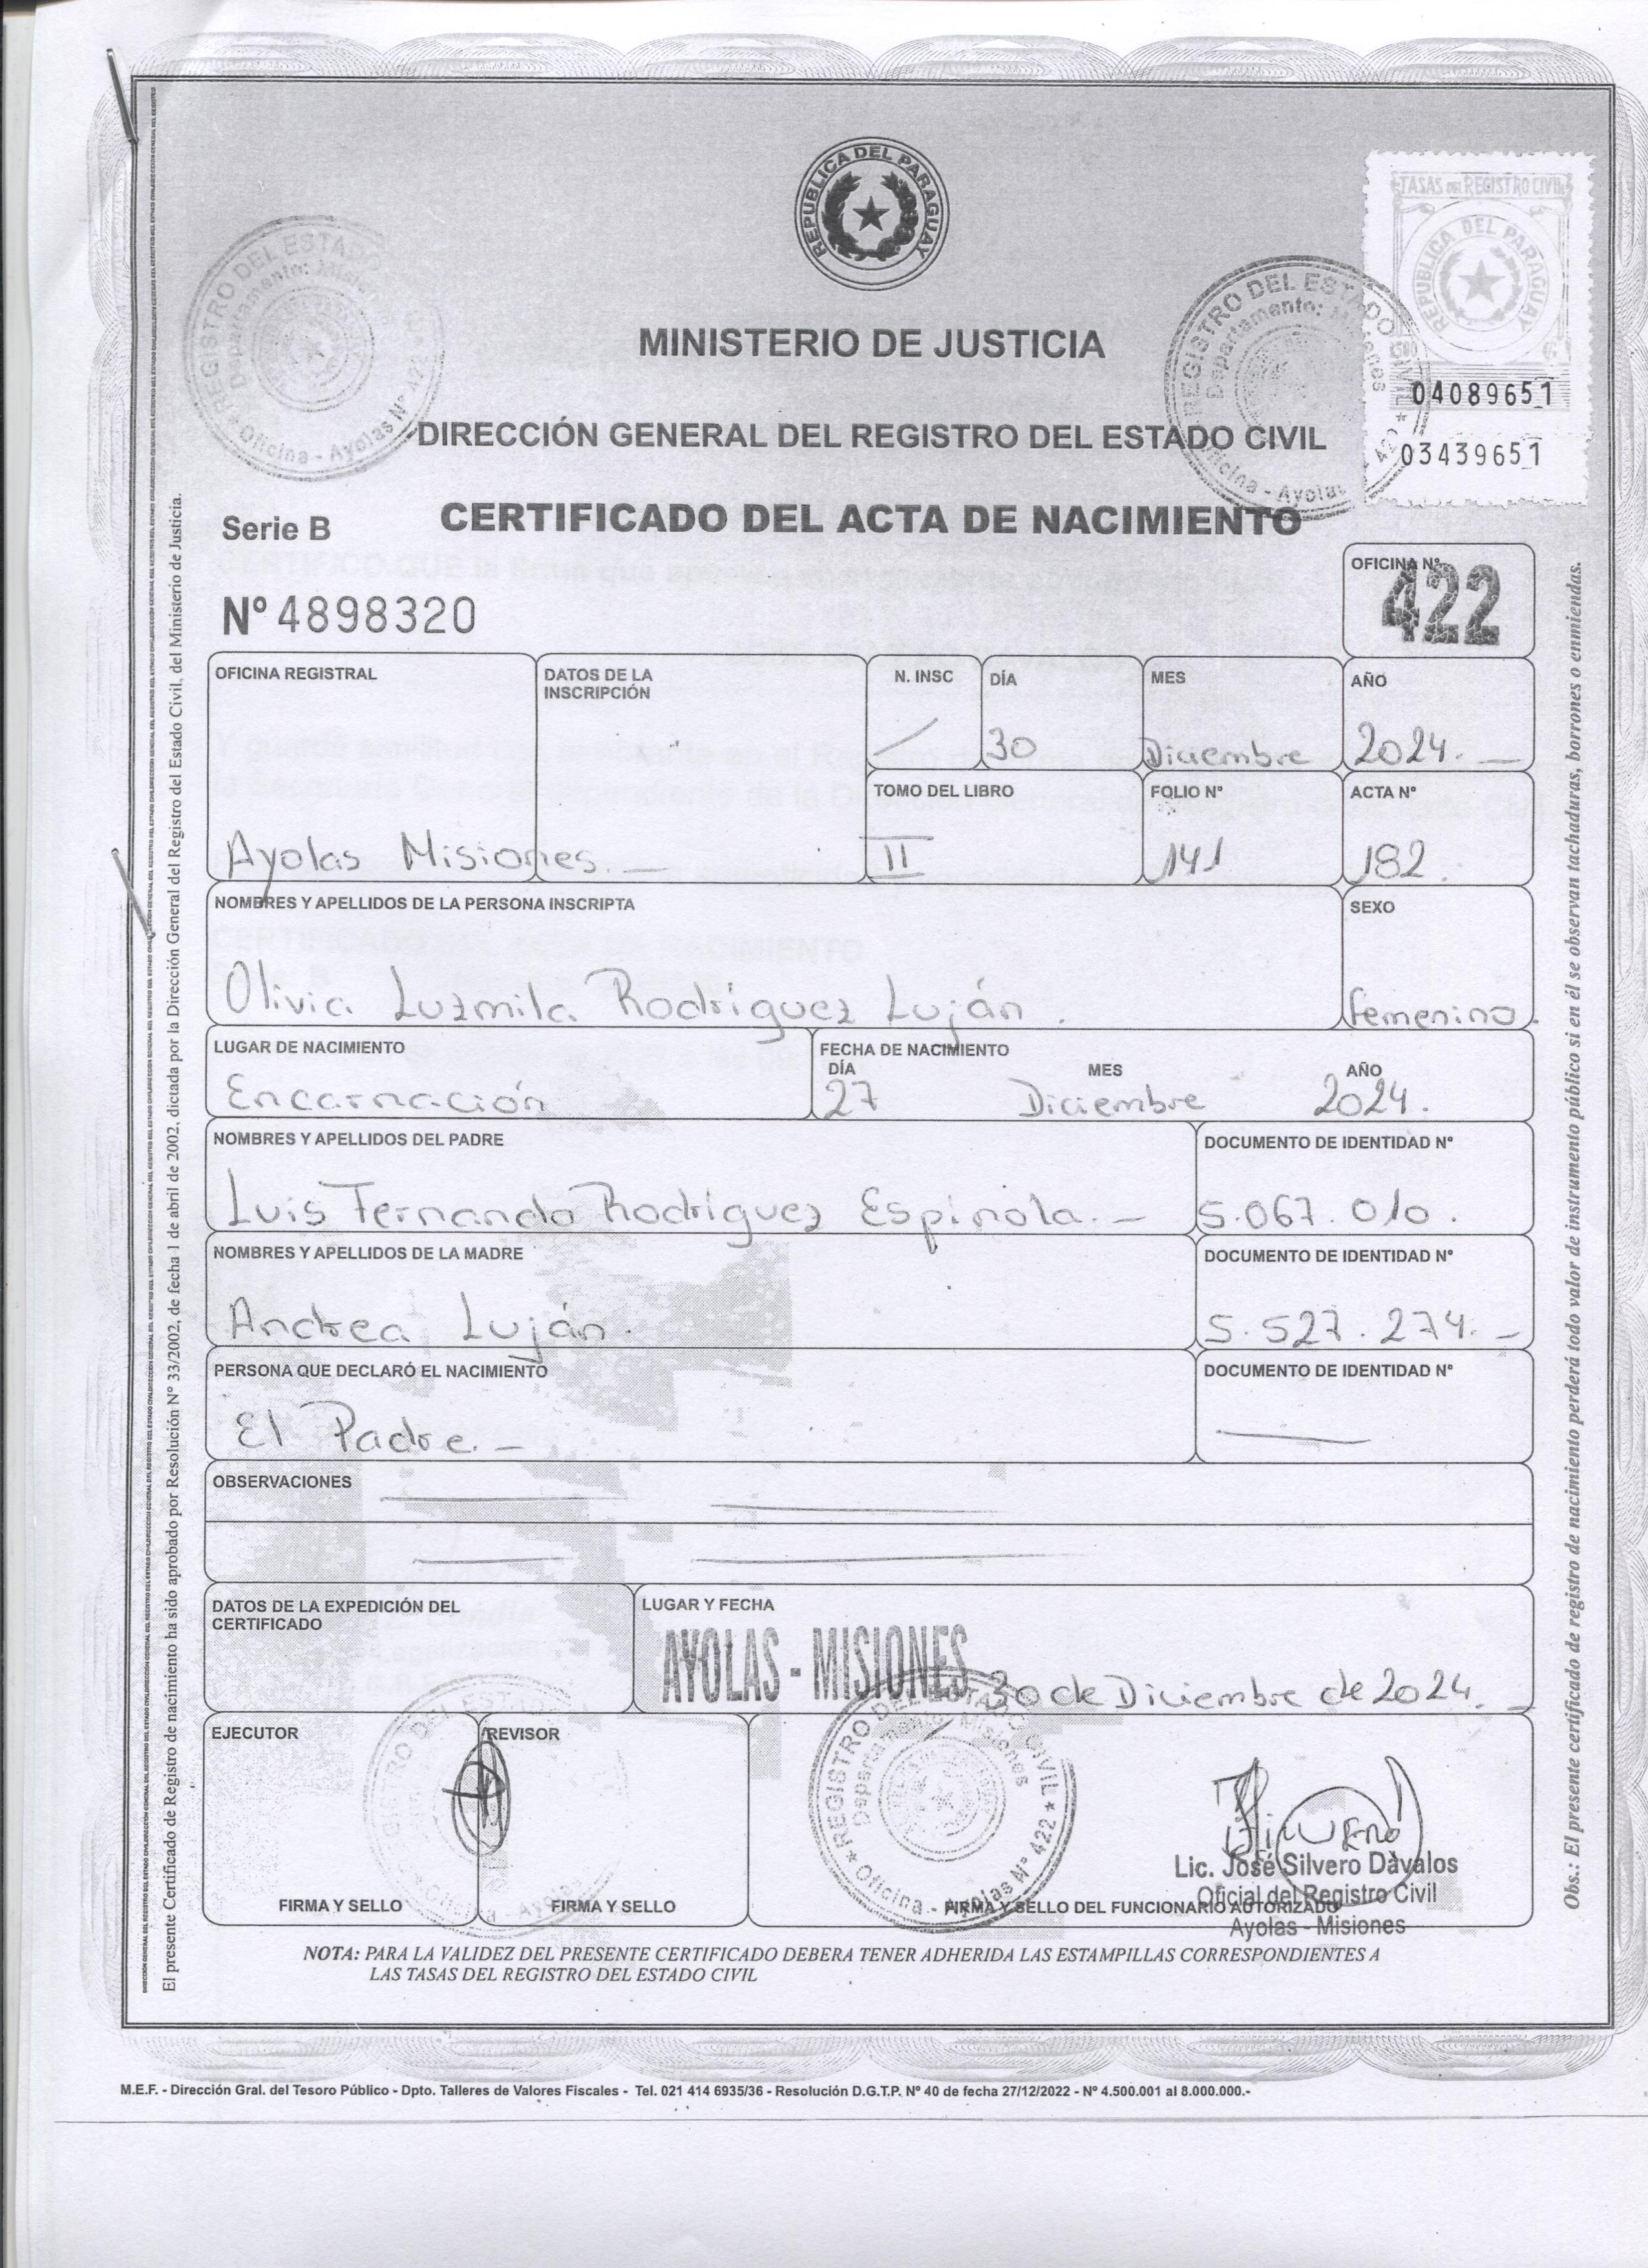 REPUBLICA DEL PARAGUAY
TASAS DEL REGISTRO CIVIL
REPUBLICA DEL PARAGUAY
04089651
03439651
REGISTRO DEL ESTADO
Departamento: Misiones
Oficina - Ayolas Nº 422
REGISTRO DEL ESTADO CIVIL
Departamento: Misiones
Oficina - Ayolas 422
MINISTERIO DE JUSTICIA
DIRECCIÓN GENERAL DEL REGISTRO DEL ESTADO CIVIL
Serie B
CERTIFICADO DEL ACTA DE NACIMIENTO
Nº 4898320
OFICINA Nº
422
OFICINA REGISTRAL
DATOS DE LA INSCRIPCIÓN
N. INSC
DÍA
MES
AÑO
30 Diciembre 2024.
TOMO DEL LIBRO
FOLIO Nº
ACTA Nº
Ayolas Misiones.
II 141 182.
NOMBRES Y APELLIDOS DE LA PERSONA INSCRIPTA
SEXO
Olivia Luzmila Rodríguez Luján.
femenino.
LUGAR DE NACIMIENTO
FECHA DE NACIMIENTO
DÍA MES AÑO
Encarnación
27 Diciembre 2024.
NOMBRES Y APELLIDOS DEL PADRE
DOCUMENTO DE IDENTIDAD Nº
Luis Fernando Rodríguez Espínola.-
5.067.010.
NOMBRES Y APELLIDOS DE LA MADRE
DOCUMENTO DE IDENTIDAD Nº
Andrea Luján.
5.527.274.-
PERSONA QUE DECLARÓ EL NACIMIENTO
DOCUMENTO DE IDENTIDAD Nº
El Padre.-
OBSERVACIONES
DATOS DE LA EXPEDICIÓN DEL CERTIFICADO
LUGAR Y FECHA
AYOLAS - MISIONES 30 de Diciembre de 2024.
EJECUTOR
REVISOR
REGISTRO DEL ESTADO CIVIL
Departamento: Misiones
Oficina - Ayolas Nº 422
Lic. José Silvero Dàvalos
Oficial del Registro Civil
Ayolas - Misiones
FIRMA Y SELLO
FIRMA Y SELLO
FIRMA Y SELLO DEL FUNCIONARIO AUTORIZADO
NOTA: PARA LA VALIDEZ DEL PRESENTE CERTIFICADO DEBERA TENER ADHERIDA LAS ESTAMPILLAS CORRESPONDIENTES A
LAS TASAS DEL REGISTRO DEL ESTADO CIVIL
El presente Certificado de Registro de nacimiento ha sido aprobado por Resolución Nº 33/2002, de fecha 1 de abril de 2002, dictada por la Dirección General del Registro del Estado Civil, del Ministerio de Justicia.
Obs.: El presente certificado de registro de nacimiento perderá todo valor de instrumento público si en él se observan tachaduras, borrones o enmiendas.
M.E.F. - Dirección Gral. del Tesoro Público - Dpto. Talleres de Valores Fiscales - Tel. 021 414 6935/36 - Resolución D.G.T.P. Nº 40 de fecha 27/12/2022 - Nº 4.500.001 al 8.000.000.-